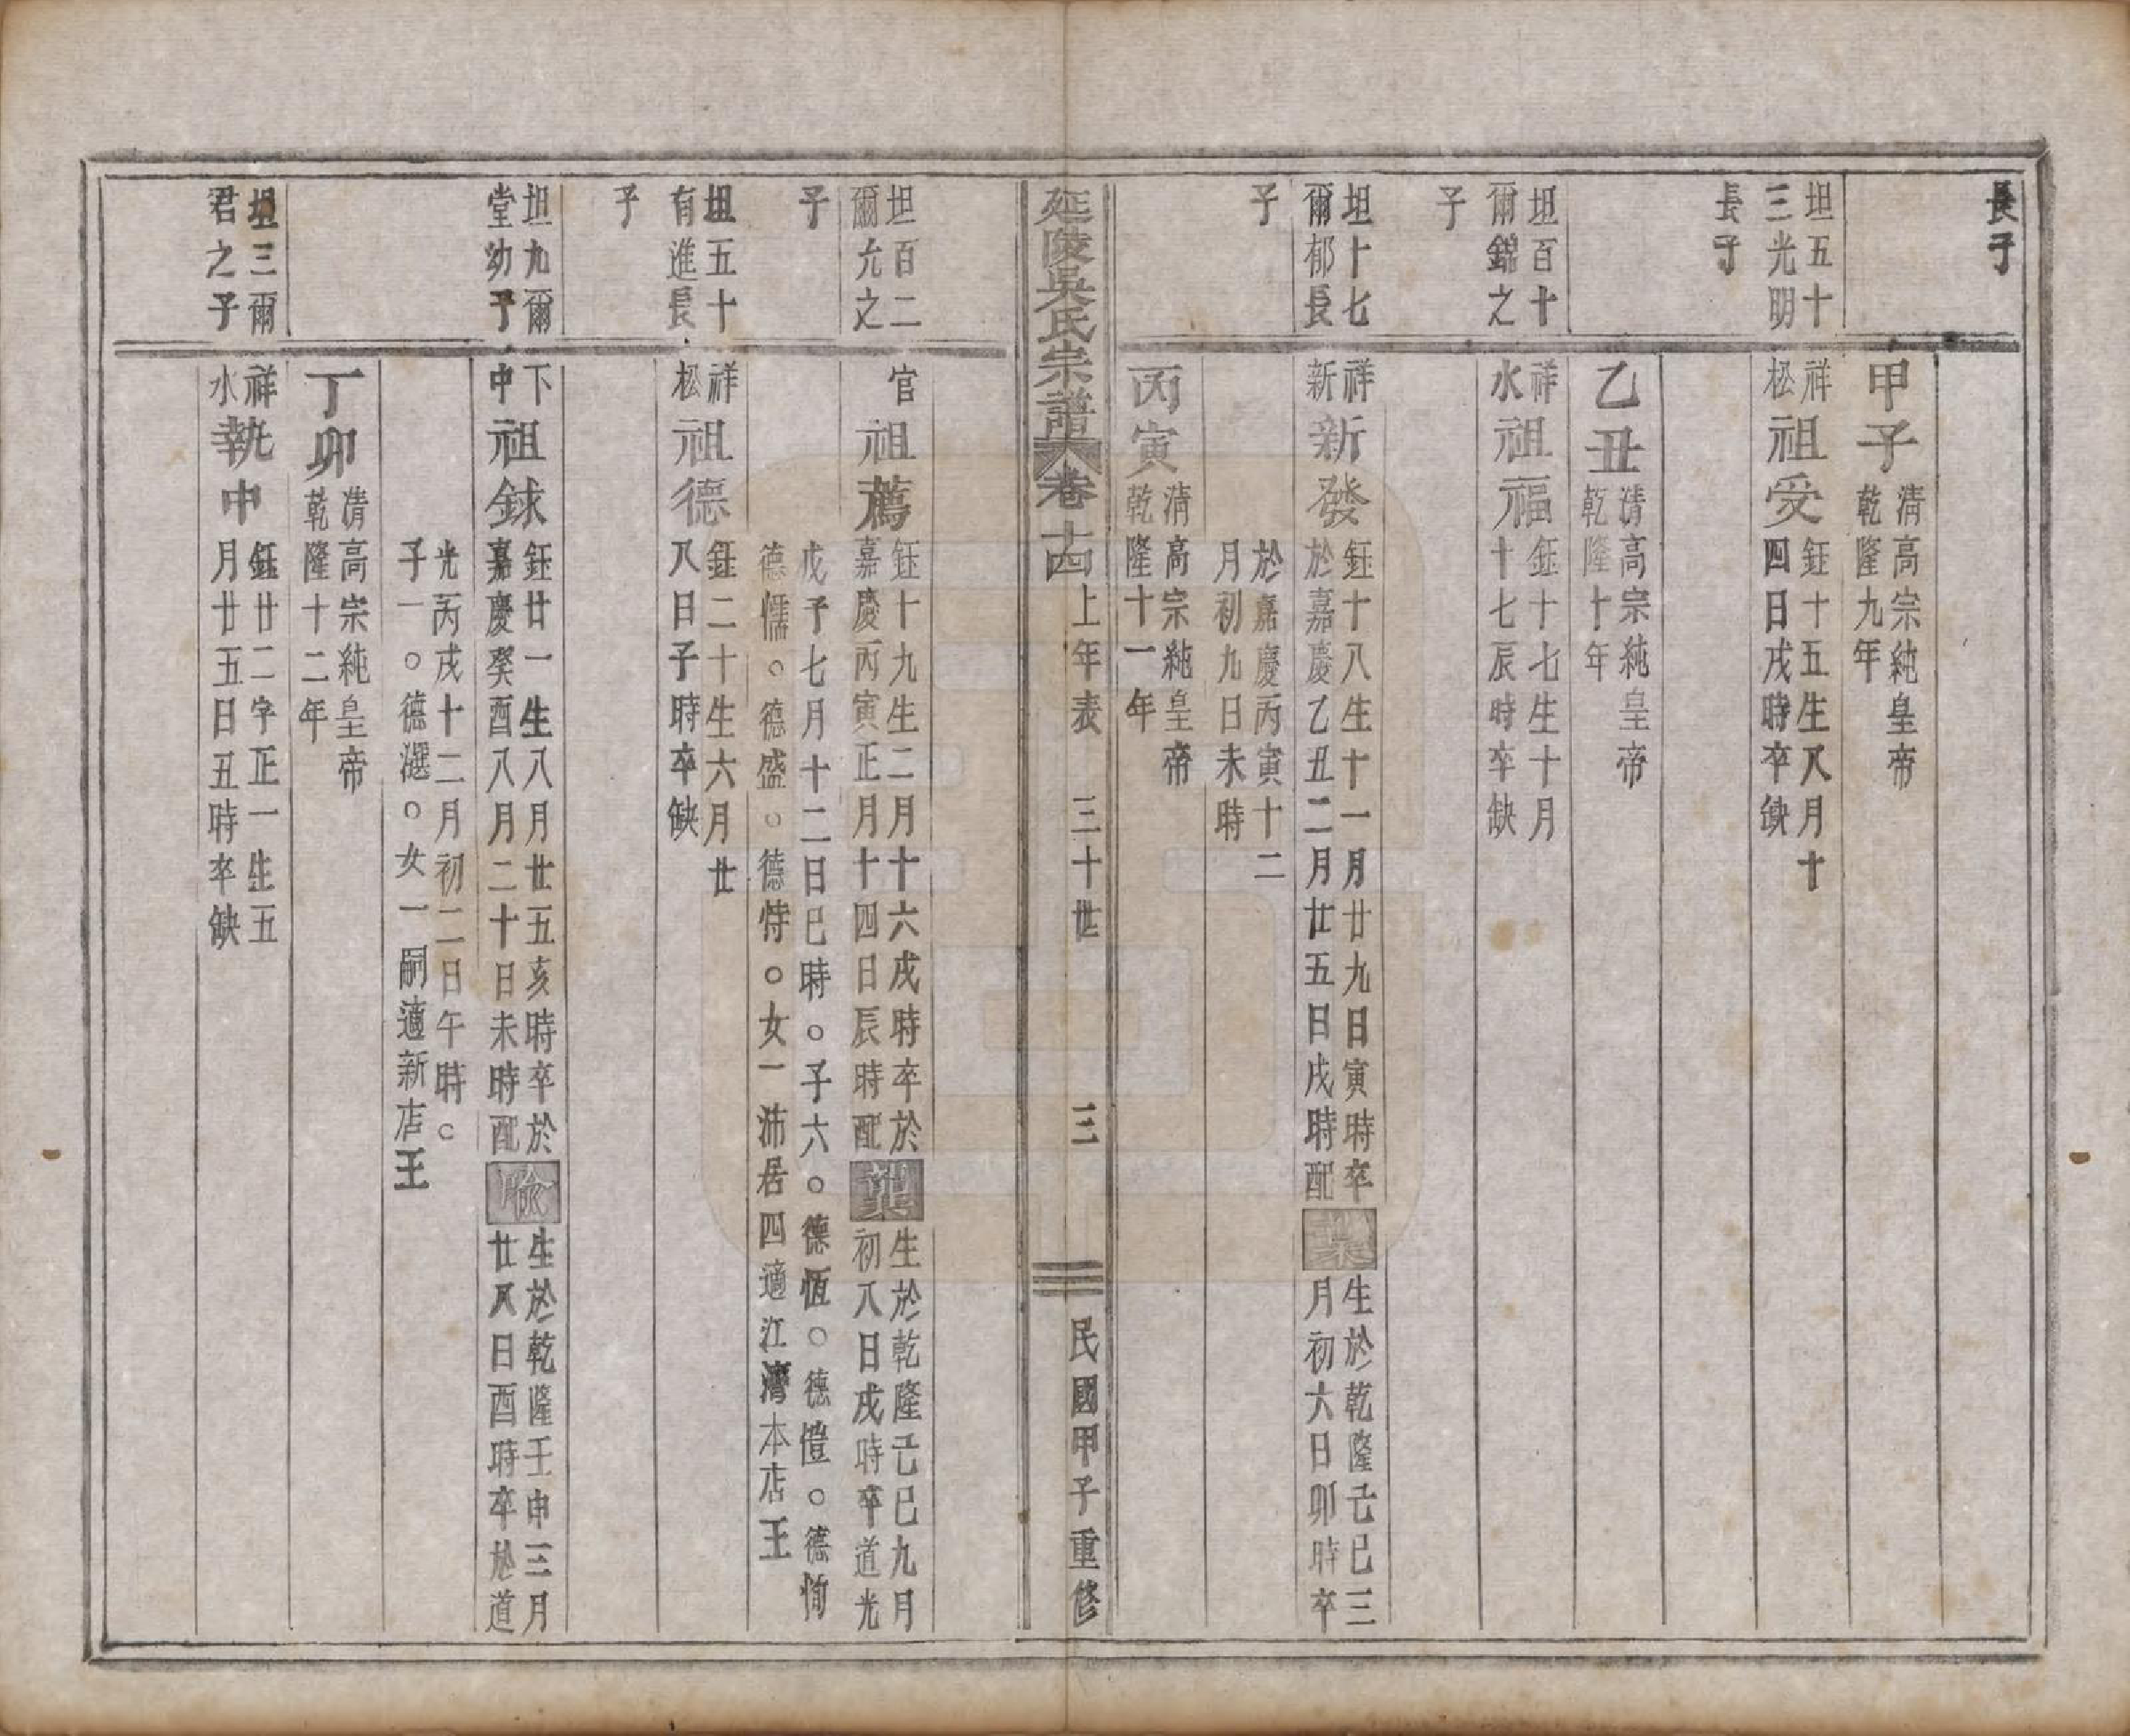 長子
甲子
清高宗純皇帝
乾隆九年
坦五十
三光明
長子
祥
松
祖受
鈺十五生八月十
四日戌時卒缺
乙丑
清高宗純皇帝
乾隆十年
坦百十
爾錦之
子
祥
水
祖福
鈺十七生十月
十七辰時卒缺
坦十七
爾郁長
子
祥
新
新發
鈺十八生十一月廿九日寅時卒
於嘉慶乙丑二月廿五日戌時配
葉
生於乾隆己巳三
月初六日卯時卒
於嘉慶丙寅十二
月初九日未時
丙寅
清高宗純皇帝
乾隆十一年
延陵吳氏宗譜
卷十四
上年表
三十世
三
民國甲子重修
坦百二
爾允之
子
官
祖薦
鈺十九生二月十六戌時卒於
嘉慶丙寅正月十四日辰時配
葉
生於乾隆己巳九月
初八日戌時卒道光
戊子七月十二日巳時○子六○德恆○德愷○德恂
德懦○德盛○德恃○女一沛居四適江灣本店王
坦五十
有進長
子
祥
松
祖德
鈺二十生六月廿
八日子時卒缺
坦九爾
堂幼子
下
中
祖銶
鈺廿一生八月廿五亥時卒於
嘉慶癸酉八月二十日未時配
喻
生於乾隆壬申三月
廿八日酉時卒於道
光丙戌十二月初二日午時○
子一○德選○女一嗣適新店王
丁卯
清高宗純皇帝
乾隆十二年
坦三爾
君之子
祥
水
執中
鈺廿二字正一生五
月廿五日丑時卒缺